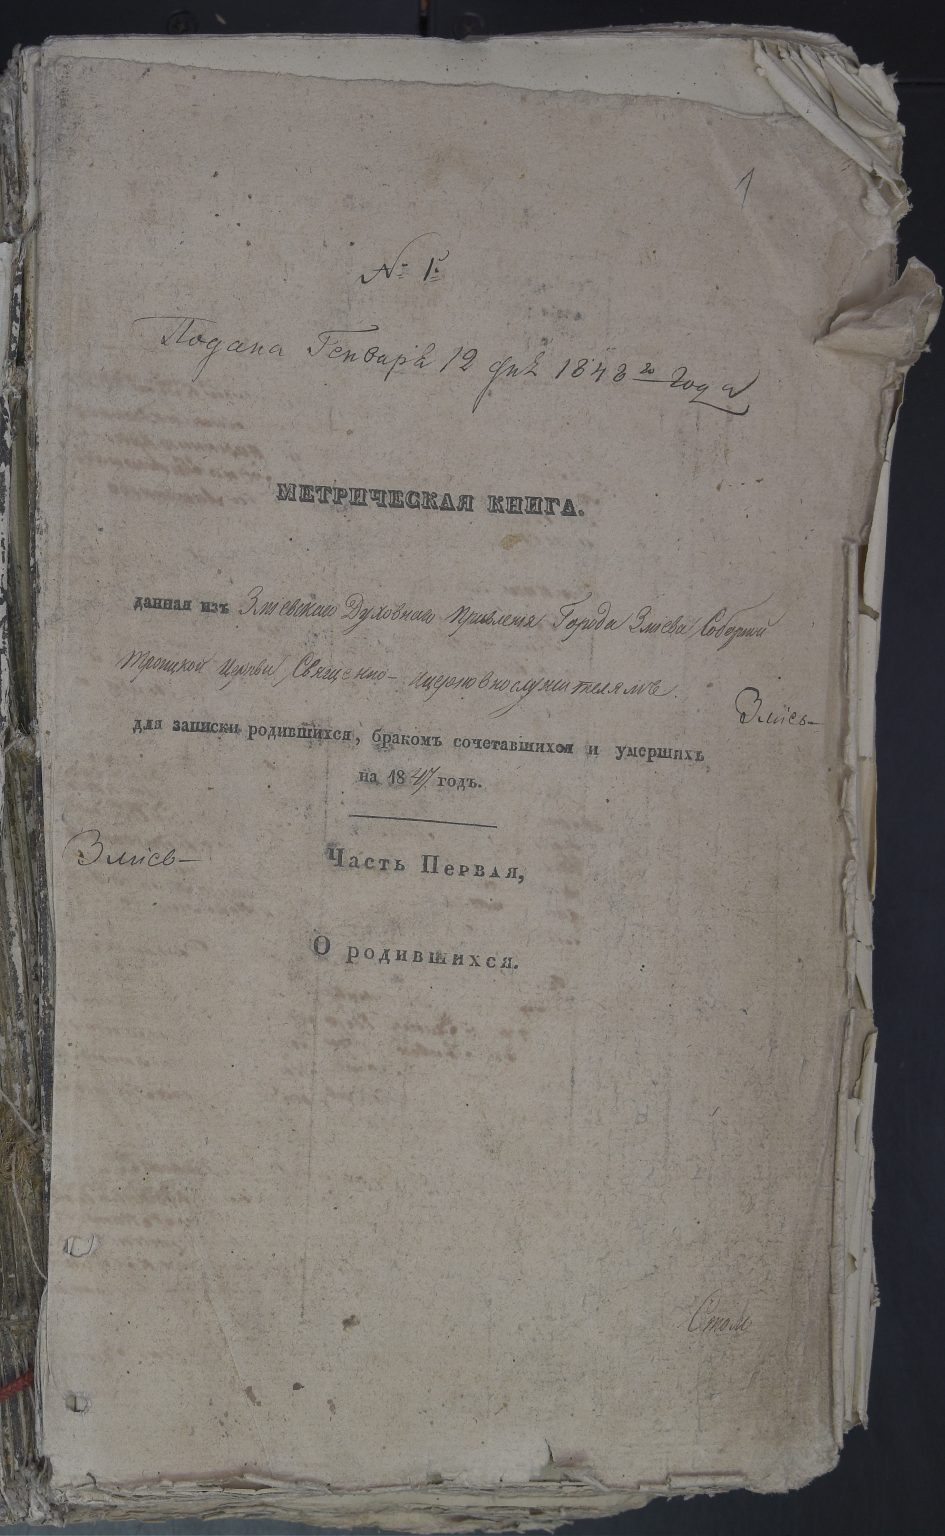 1
№ 1й
Подана Генваря 12 дня 1848го года
МЕТРИЧЕСКАЯ КНИГА.
данная изъ Зміевскаго Духовнаго Правленія Города Зміева Соборной
Троицкой Церкви Священно-и церковнослужителямъ.
Зміев-
для записки родившихся, бракомъ сочетавшихся и умершихъ
на 1847 годъ.
Зміев-
Часть Первая,
О родившихся.